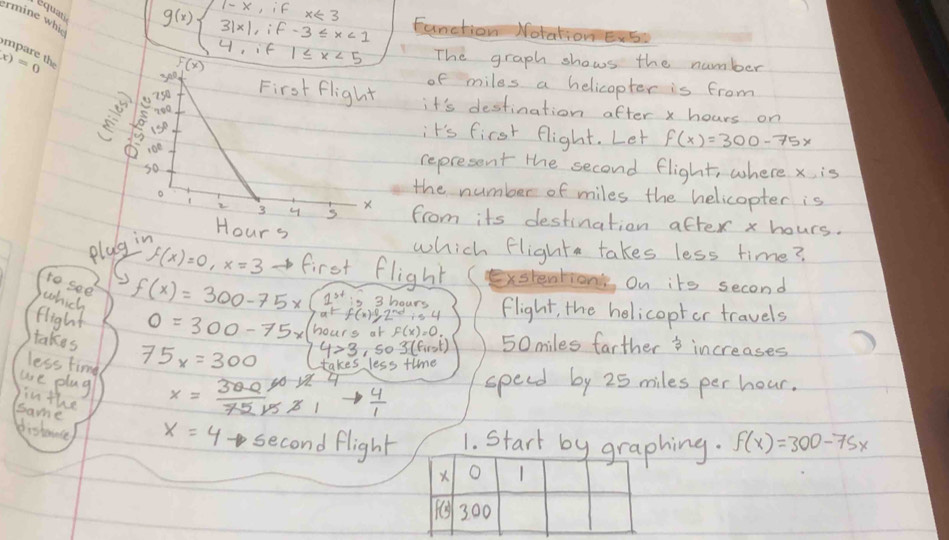 equati
ermine whic
ompare the
x) = 0
g(x) { 1-x, if x < 3
3|x|, if -3 ≤ x < 1
4, if 1 ≤ x < 5
f(x)
First flight
Distance
(Miles)
300
250
200
150
100
50
0 1 2 3 4 5 x
Hours
Function Notation Ex5:
The graph shows the number
of miles a helicopter is from
it's destination after x hours on
it's first flight. Let f(x)=300-75x
represent the second flight, where x, is
the number of miles the helicopter is
from its destination after x hours.
which flight takes less time?
plug in
f(x)=0, x=3 → first flight
f(x) = 300-75x
0 = 300-75x
75x = 300
x = 300 60 12 4 / 75 15 3 1 → 4/1
x = 4 → second flight
to see
which
flight
takes
less time
we plug
in the
same
distance
1st is 3 hours
at f(x)=0, 2nd is 4
hours at f(x)=0.
4>3, so 3(first)
takes less time
Exstention: On its second
flight, the helicopter travels
50 miles farther & increases
speed by 25 miles per hour.
1. Start by graphing. f(x)=300-75x
x 0 1
f(x) 300